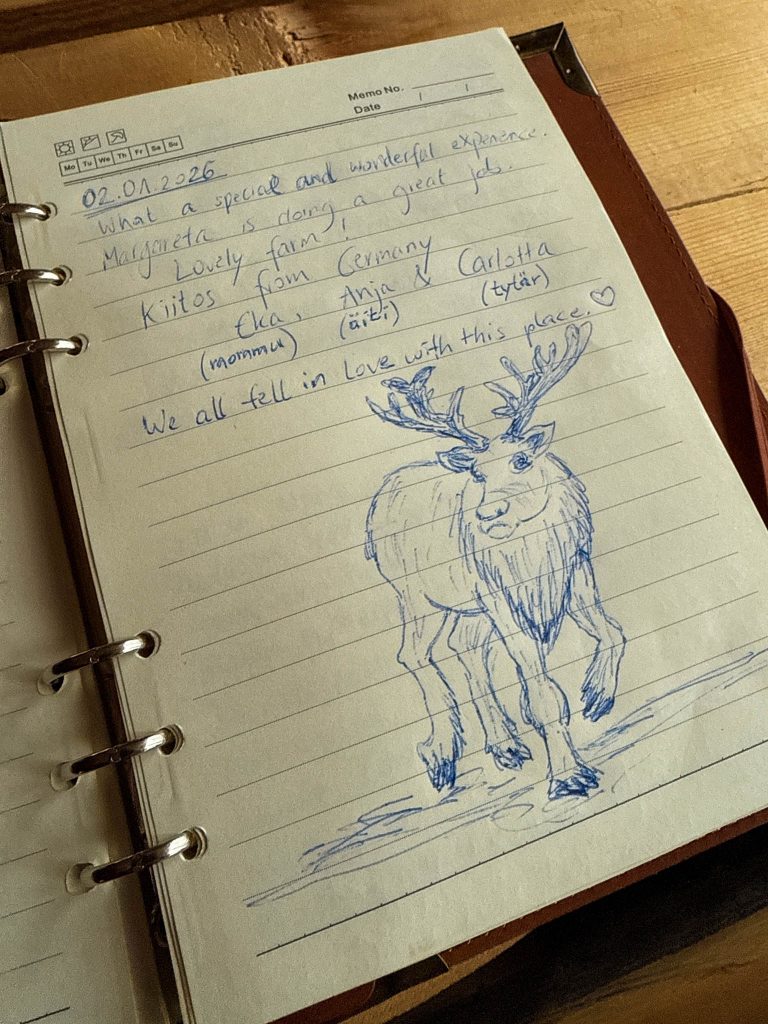 Memo No.
Date / /
Mo Tu We Th Fr Sa Su
02.01.2026
What a special and wonderful experience.
Margareta is doing a great job.
Lovely farm!
Kiitos from Germany
Eka, Anja & Carlotta
(mommu) (äiti) (tytär)
We all fell in love with this place. ♡